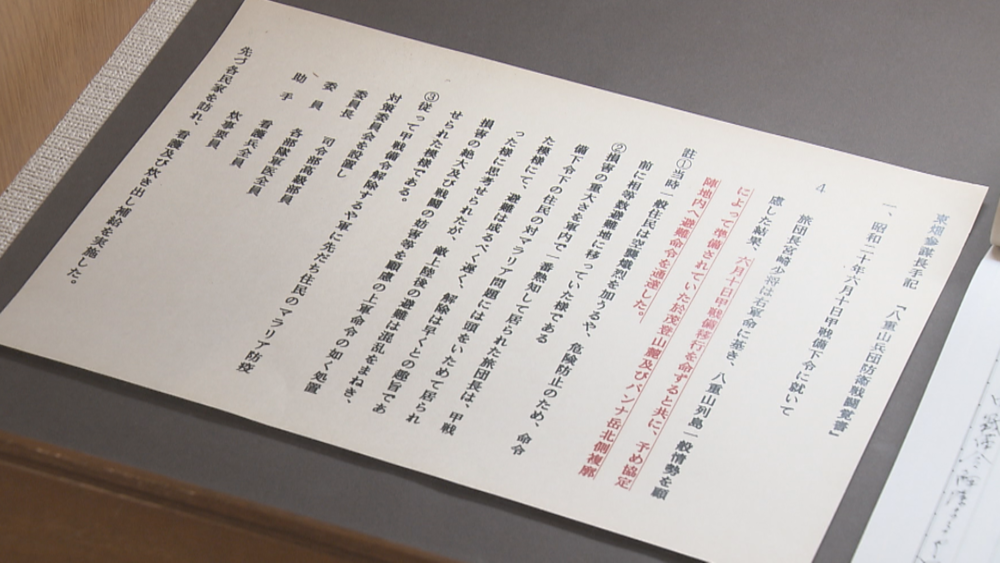 東畑参謀長手記 「八重山兵団防衛戦闘覚書」
一、昭和二十年六月十日甲戦備下令に就いて
4
旅団長宮崎少将は右軍命に基き、八重山列島一般情勢を顧
慮した結果、六月十日甲戦備移行を命ずると共に、予め協定
によって準備されていた於茂登山麓及びバンナ岳北側複廓
陣地内へ避難命令を通達した。
註①当時一般住民は空襲熾烈を加うるや、危険防止のため、命令
前に相等数避難地に移っていた様である
②損害の重大さを軍内で一番熟知して居られた旅団長は、甲戦
備下令下の住民の対マラリア問題には頭をいためて居られ
た模様にて、避難は成るべく遅く、解除は早くとの趣旨であ
った様に思考せられたが、敵上陸後の避難は混乱をまねき、
損害の絶大及び戦闘の妨害等を顧慮の上軍命令の如く処置
せられた模様である。
③従って甲戦備令解除するや軍に先だち住民のマラリア防疫
対策委員会を設置し
委員長 司令部高級部員
委員 各部隊軍医全員
助手 看護兵全員
炊事要員
先づ各民家を訪れ、看護及び炊き出し補給を実施した。